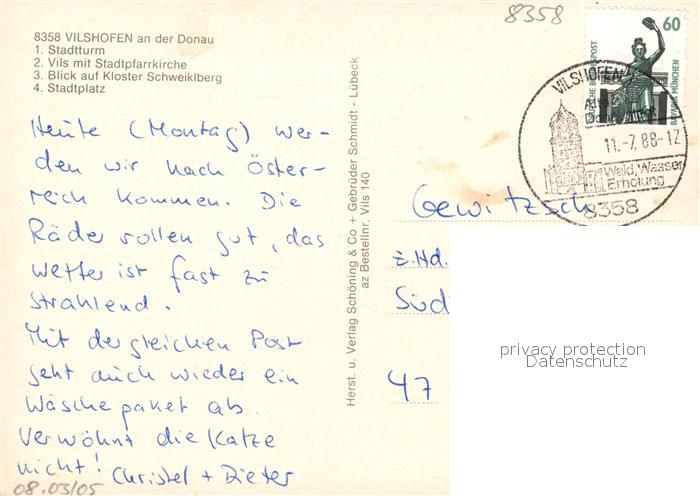 8358
8358 VILSHOFEN an der Donau
1. Stadtturm
2. Vils mit Stadtpfarrkirche
3. Blick auf Kloster Schweiklberg
4. Stadtplatz
Heute (Montag) wer-
den wir nach Öster-
reich kommen. Die
Räder rollen gut, das
Wetter ist fast zu
strahlend.
Mit der gleichen Post
geht auch wieder ein
Wäschepaket ab.
Verwöhnt die Katze
nicht! Christel + Dieter
08.03/05
Herst. u. Verlag Schöning & Co + Gebrüder Schmidt - Lübeck
az Bestellnr. Vils 140
60
DEUTSCHE BUNDESPOST
BAVARIA MÜNCHEN
VILSHOFEN
11.-7.88-12
Wald, Wasser
Erholung
8358
Gewitzsch
z.Hd.
Süd
47
privacy protection
Datenschutz